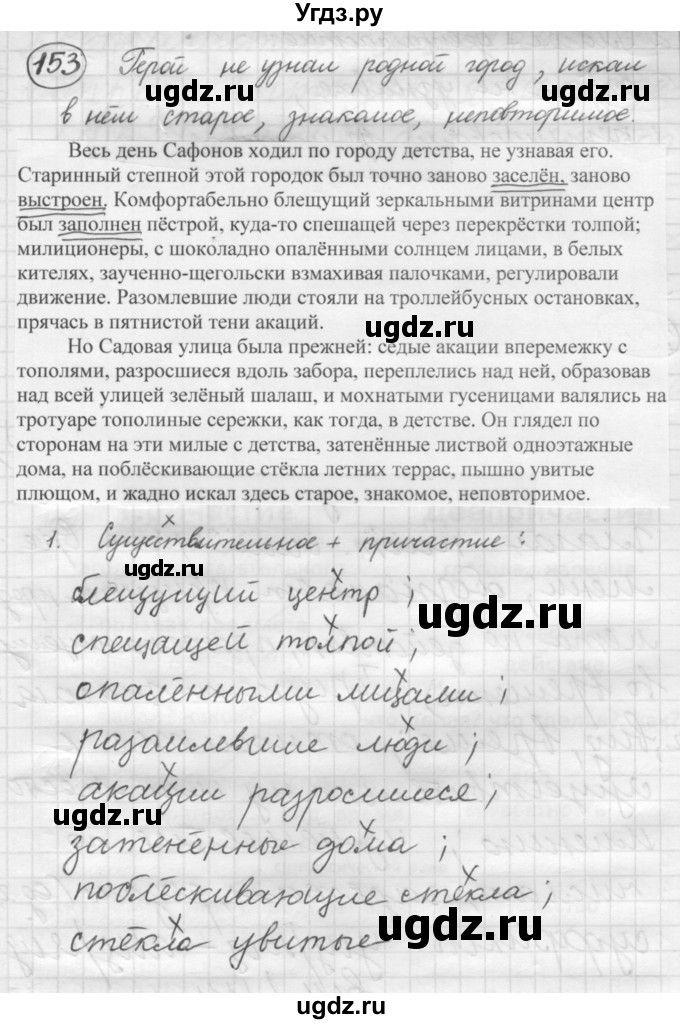 Угдз.ру
153 Герой не узнал родной город, искал
ugdz.ru ugdz.ru
в нём старое, знакомое, неповторимое.
Весь день Сафонов ходил по городу детства, не узнавая его.
Старинный степной этой городок был точно заново заселён, заново
выстроен. Комфортабельно блещущий зеркальными витринами центр
был заполнен пёстрой, куда-то спешащей через перекрёстки толпой;
милиционеры, с шоколадно опалёнными солнцем лицами, в белых
кителях, заученно-щегольски взмахивая палочками, регулировали
движение. Разомлевшие люди стояли на троллейбусных остановках,
прячась в пятнистой тени акаций.
ugdz.ru
Но Садовая улица была прежней: седые акации вперемежку с
тополями, разросшиеся вдоль забора, переплелись над ней, образовав
над всей улицей зелёный шалаш, и мохнатыми гусеницами валялись на
тротуаре тополиные сережки, как тогда, в детстве. Он глядел по
сторонам на эти милые с детства, затенённые листвой одноэтажные
дома, на поблёскивающие стёкла летних террас, пышно увитые
плющом, и жадно искал здесь старое, знакомое, неповторимое.
1. Существительное + причастие:
ugdz.ru
блещущий центр;
ugdz.ru
спещащей толпой;
опалёнными лицами;
разомлевшие люди;
акации разросшиеся;
ugdz.ru
затенённые дома;
поблёскивающие стёкла;
ugdz.ru
стёкла увитые
ugdz.ru